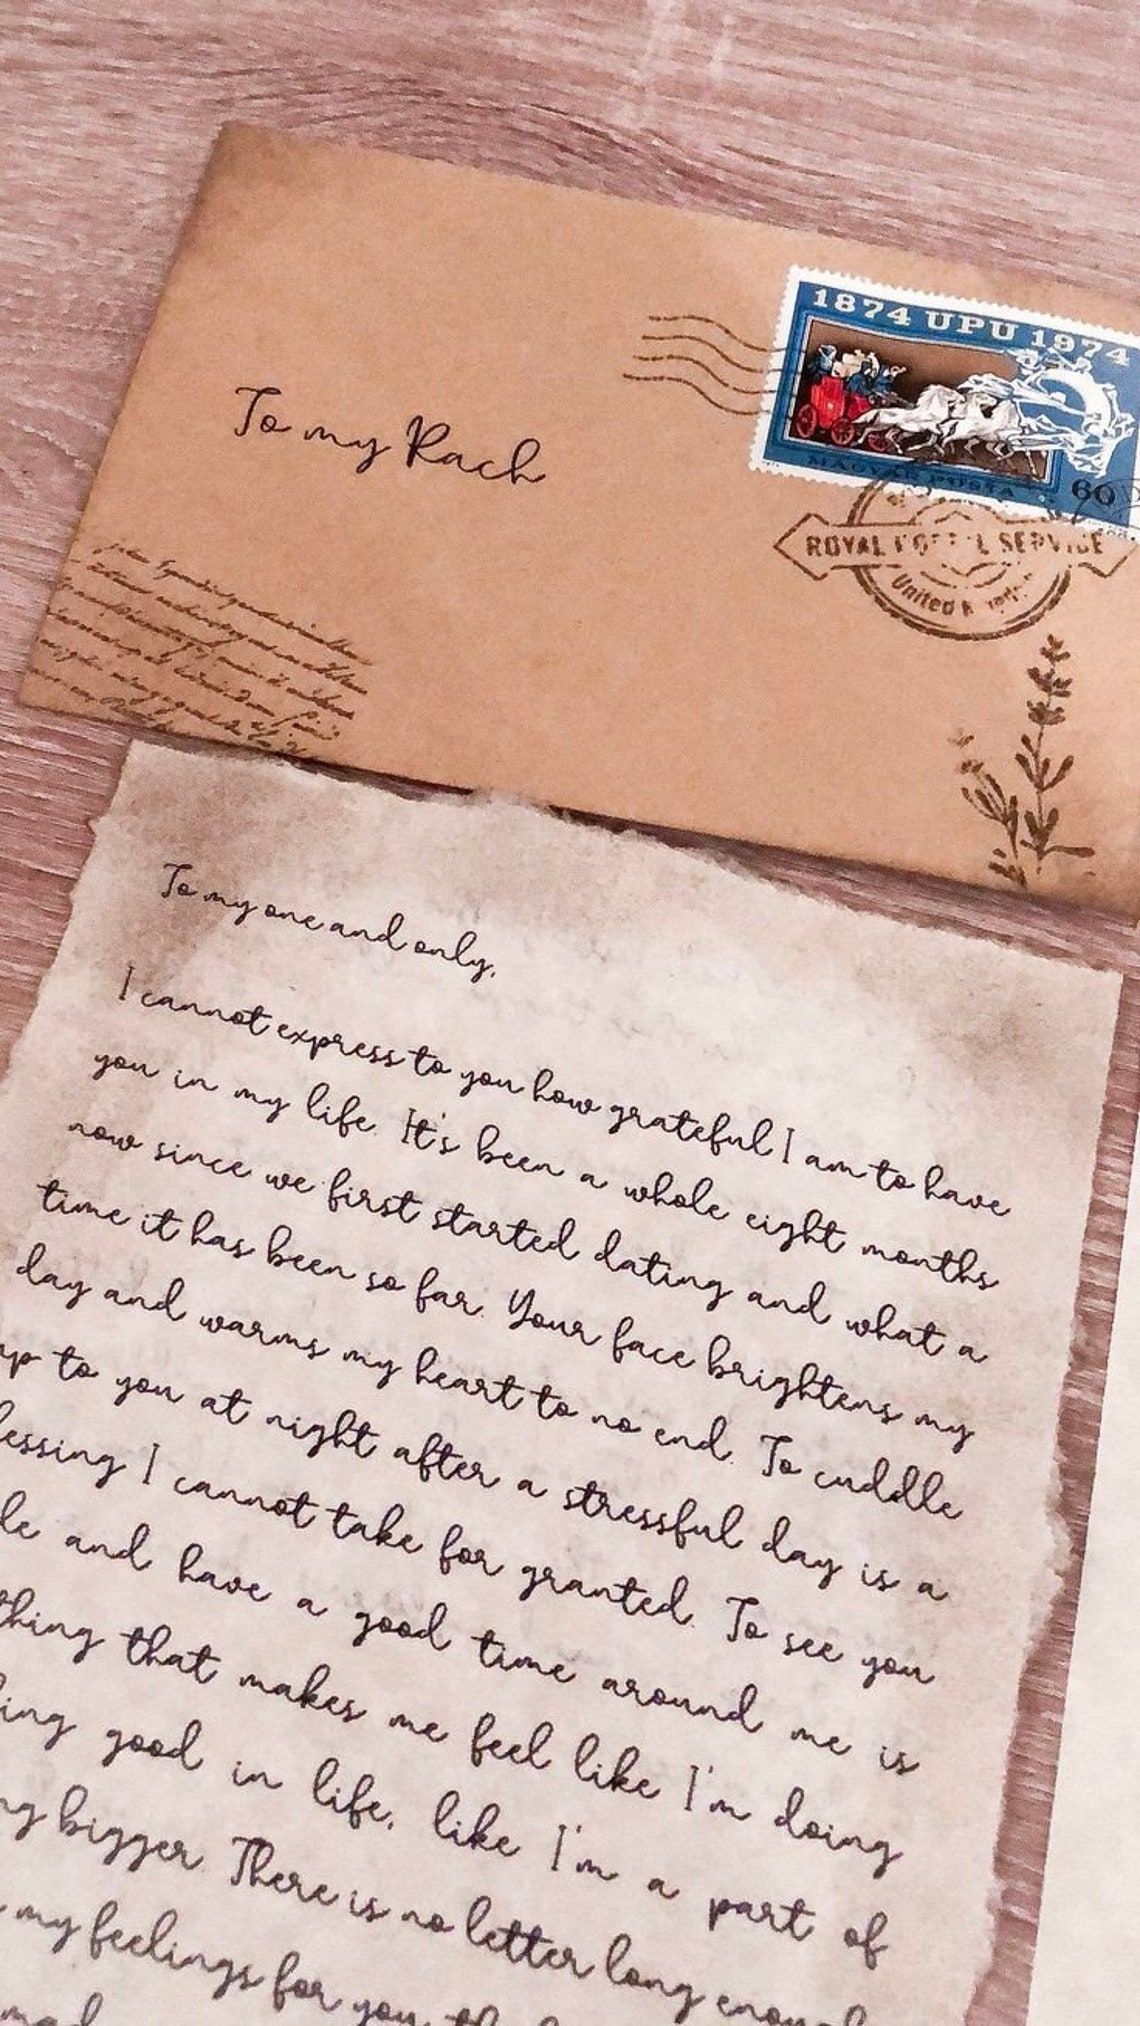 1874 UPU 1974
To my Rach
MAGYAR POSTA
60
ROYAL POSTAL SERVICE
United Kingdom
To my one and only,
I cannot express to you how grateful I am to have
you in my life. It's been a whole eight months
now since we first started dating and what a
time it has been so far. Your face brightens my
day and warms my heart to no end. To cuddle
up to you at night after a stressful day is a
lessing I cannot take for granted. To see you
le and have a good time around me is
thing that makes me feel like I'm doing
ing good in life, like I'm a part of
ng bigger. There is no letter long enough
my feelings for you